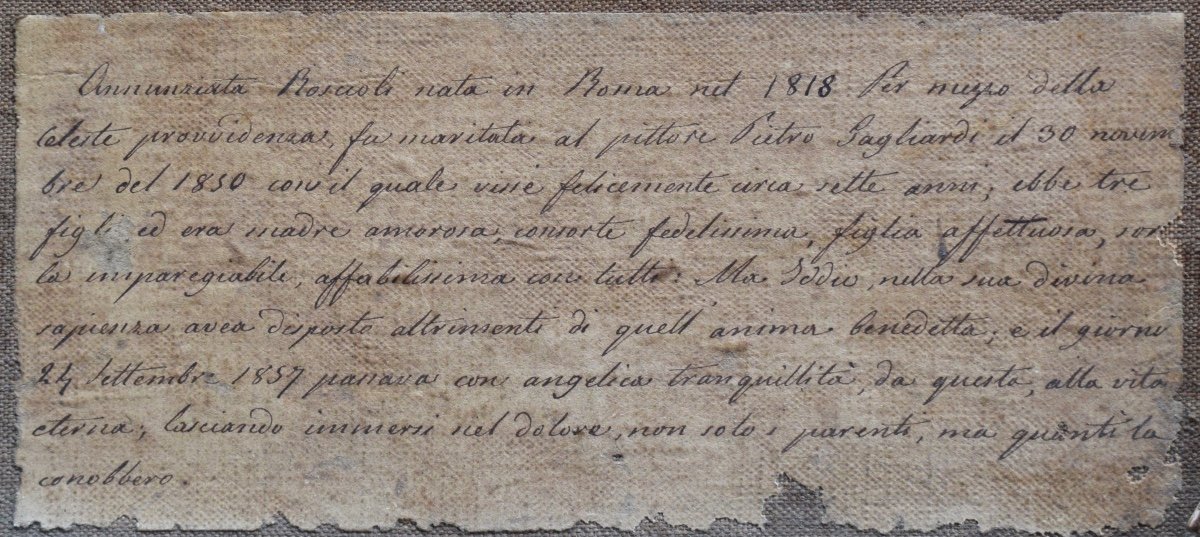 Annunziata Roscioli nata in Roma nel 1818 Per mezzo della
celeste provvidenza, fu maritata al pittore Pietro Gagliardi il 30 novem
bre del 1850 con il quale visse felicemente circa sette anni; ebbe tre
figli ed era madre amorosa, consorte fedelissima, figlia affettuosa, sorel
la imparegiabile, affabilissima con tutti. Ma Iddio, nella sua divina
sapienza avea disposto altrimenti di quell'anima benedetta; e il giorno
24 Settembre 1857 passava con angelica tranquillità, da questa, alla vita
eterna; lasciando immersi nel dolore, non solo i parenti, ma quanti la
conobbero.